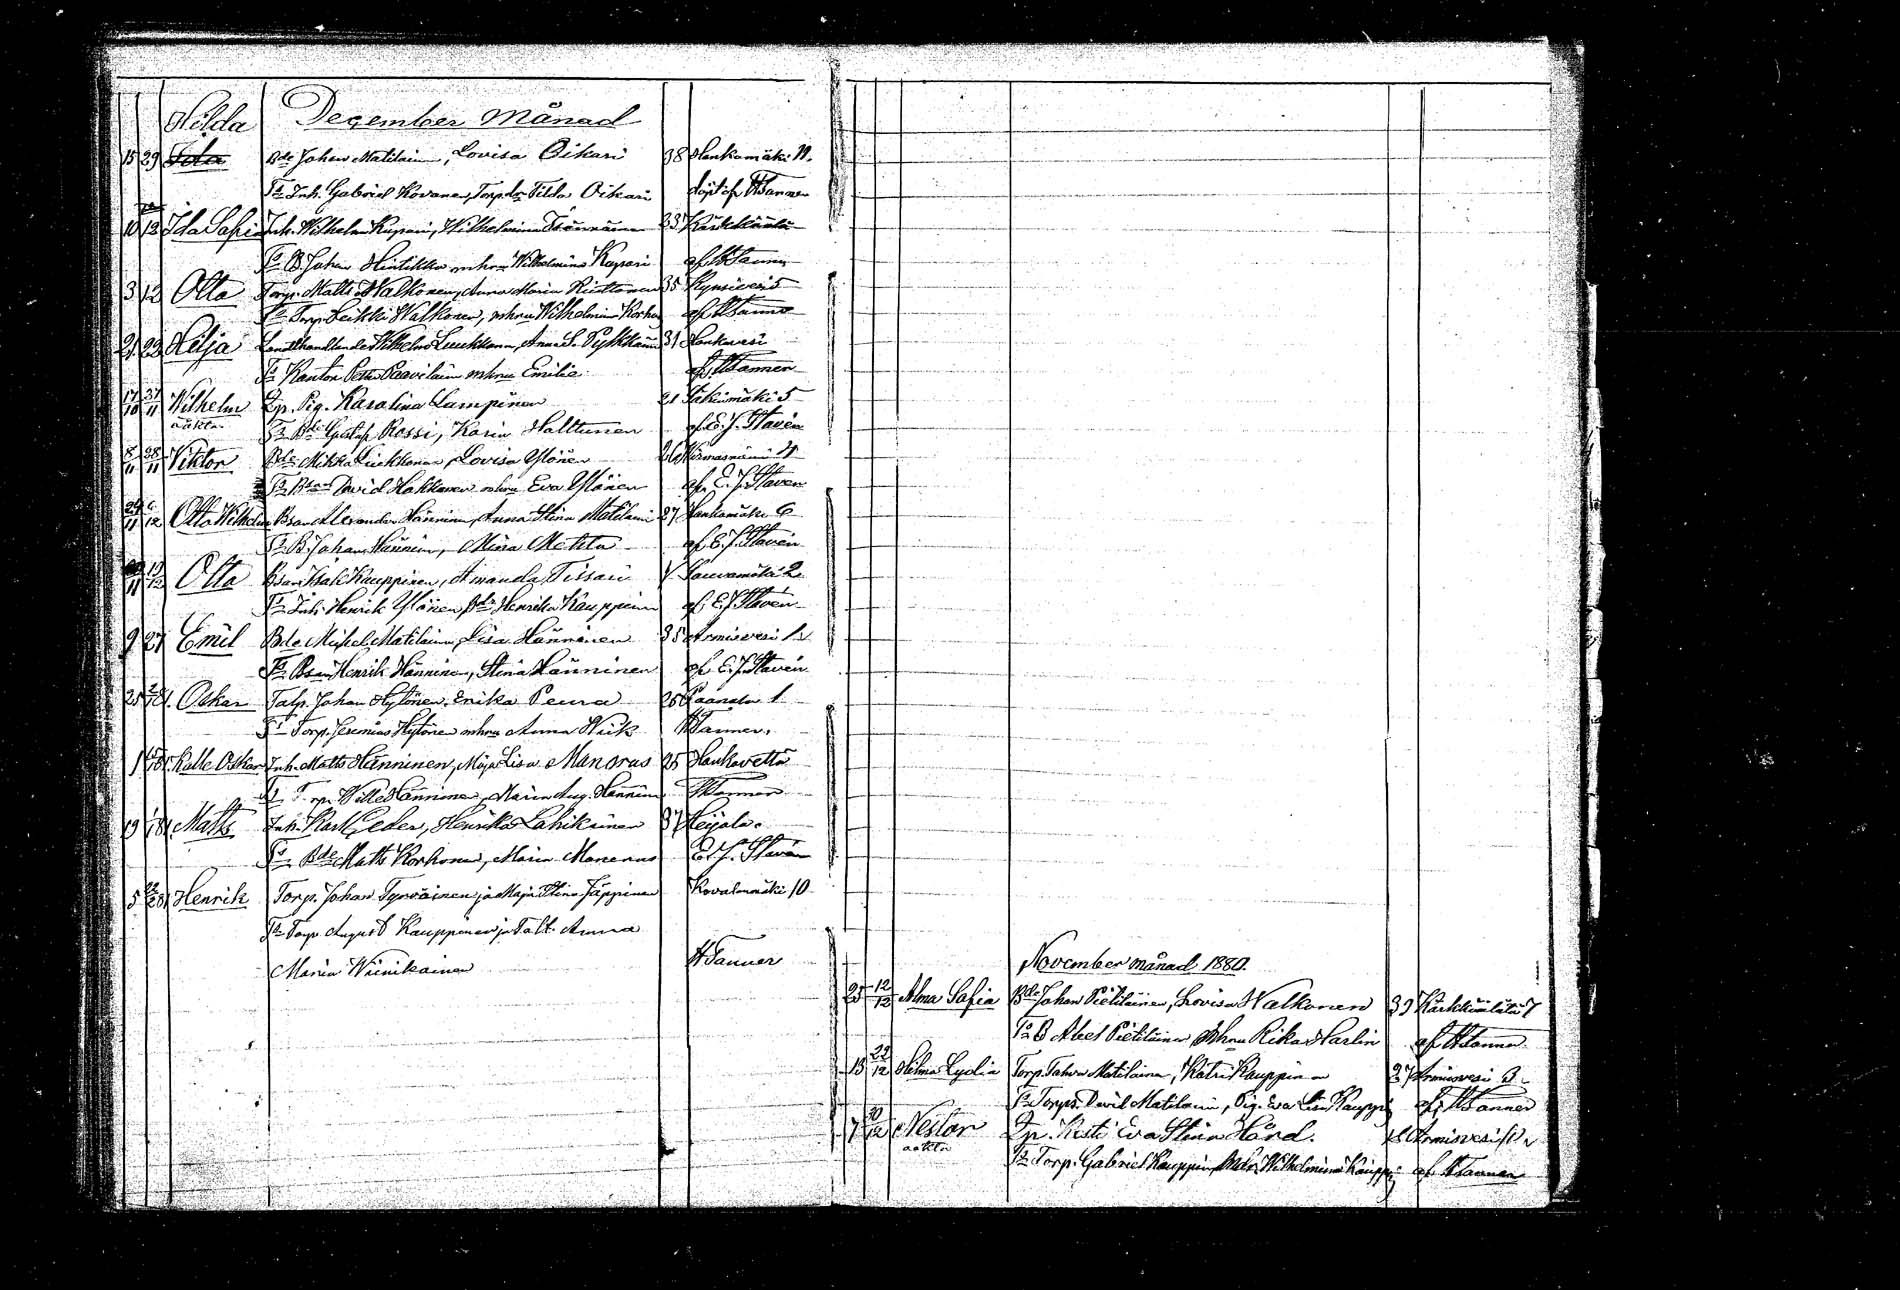 Hilda December Månad
15 29 Ida Bde Johan Matilain, Lovisa Oikari 38 Hankamäki 11.
Fs Inh. Gabriel Kovanen, Torp.dr Tilda Oikari döpt af HTanner
10 12 Ida Sofia Inh. Wilhelm Kupari, Wilhelmina 33 Kärkkäälä
Fs B. Johan Hintikka m hru Wilhelmina Kupari af HTanner
3 12 Otto Torp. Matts Walkonen, Anna Maria 35 Kynsivesi 5
Fs Torp. Heikki Walkonen, mhru Wilhelmina Korho af HTanner
21 23 Hilja Landthandlande Wilhelm Luukkonen, Anna S. Pylkkänen 31 Hankavesi
Fs Kantor Petter Paavilain mhru Emilie af HTanner
17/10 27/11 Wilhelm Qp. Pig. Karolina Lampinen 21
oäkta Fs Bde Gustaf Rossi, Karin Halttunen af E.J. Stavén
8/11 28/11 Viktor Bde Mikko Liukkonen, Lovisa Ylönen 26
Fs Bson David Hakkanen mhru Eva Ylönen af E.J. Stavén
24/11 6/12 Otto Wilhelm Bson Alexander Hänninen, Anna Stina Matilain 27 Hankamäki 6
Fs B. Johan Hänninen, Mina af E.J. Stavén
11 19/12 Otto Bson Isak Kauppinen, Amanda Tissari V Sauvamäki 2
Fs Inh. Henrik Ylönen, Bdr Henrika Kauppinen af E.J. Stavén
9 27 Emil Bde Michel Matilain, Lisa Hänninen 35 Armisvesi 1
Fs Bson Henrik Hänninen, Stina Hänninen af E.J. Stavén
25 2/1 81. Oskar Talp. Johan Hytönen, Erika Peura 26 Paanala 1
Fs Torp. Jeremias Hytönen mhru Anna Wiik HTanner.
1 81. Kalle Oskar Inh. Matts Hänninen, Maja Lisa Manorus 25 Hankavettä
Fs Torp. Wille Hänninen, Maria Aug. Hännin HTanner
19 1/1 81. Matts Inh. Karl Geder, Henrika Lahikainen 37 Leijala.
Fs Bde Matts Korhonen, Maria Manerus E.J. Stavén
5 22/2 81 Henrik Torp. Johan Tyrväinen ja Maja Stina Jäppinen Kovalanmäki 10
Fs Torp. August Kauppinen ja Talt. Anna
Maria Wiinikainen HTanner
November månad 1880.
25 12/12 Alma Sofia Bde Johan Pietiläinen, Lovisa Walkonen 39 Kärkkäälä 7
Fs B Abel Pietiläinen Mhru Rika Harlin af HTanner
13 22/12 Hilma Lydia Torp. Matilainen, Katri Kauppinen 27 Armisvesi 3
Fs Torps. David Matilain, Pig. Eva Lisa Kauppi af HTanner
7 30/12 Nestor Qp. Eva Stina Hård. Armisvesi
oäkta Fs Torp. Gabriel Kauppin, Wilhelmina Kauppi af HTanner